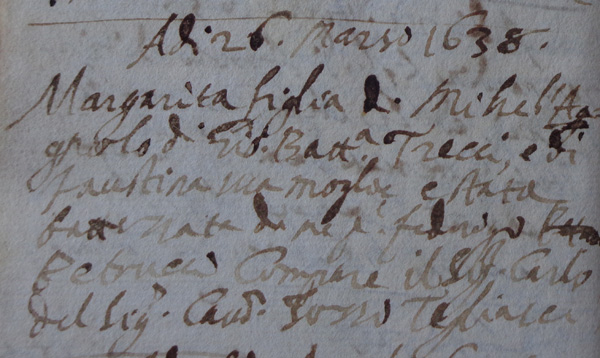 Adi 26. Marzo 1638.
Margarita figlia di Mihel'Ag=
gnolo di Gio: Batt.a Trecci, e di
faustina sua moglie e stata
battezzata da me p. fedrigo
Petrucci Compare il Sig. Carlo
del Sig.r Cav.r Tegliacci